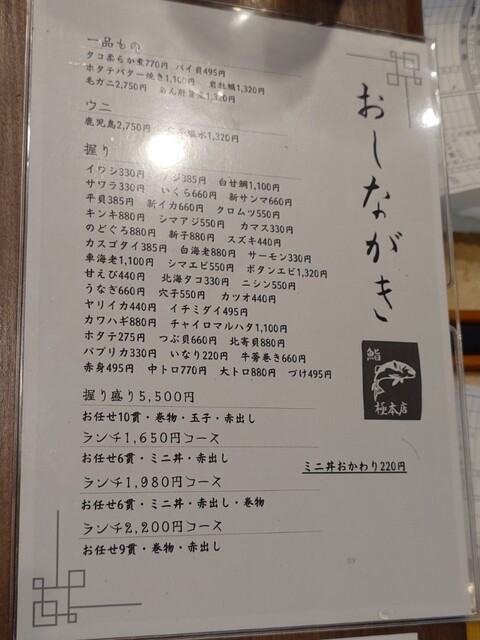 おしながき
一品もの
タコ柔らか煮770円 バイ貝495円
ホタテバター焼き1,100円 岩牡蠣1,320円
毛ガニ2,750円 あん肝 1,320円
ウニ
鹿児島2,750円 塩水1,320円
握り
イワシ330円 アジ385円 白甘鯛1,100円
サワラ330円 いくら660円 新サンマ660円
平貝385円 新イカ660円 クロムツ550円
キンキ880円 シマアジ550円 カマス330円
のどぐろ880円 新子880円 スズキ440円
カスゴダイ385円 白海老880円 サーモン330円
車海老1,100円 シマエビ550円 ボタンエビ1,320円
甘えび440円 北海タコ330円 ニシン550円
うなぎ660円 穴子550円 カツオ440円
ヤリイカ440円 イチミダイ495円
カワハギ880円 チャイロマルハタ1,100円
ホタテ275円 つぶ貝660円 北寄貝880円
パプリカ330円 いなり220円 牛蒡巻き660円
赤身495円 中トロ770円 大トロ880円 づけ495円
握り盛り5,500円
お任せ10貫・巻物・玉子・赤出し
ランチ1,650円コース
お任せ6貫・ミニ丼・赤出し
ランチ1,980円コース
お任せ6貫・ミニ丼・赤出し・巻物
ランチ2,200円コース
お任せ9貫・巻物・赤出し
鮨
極本店
ミニ丼おかわり220円